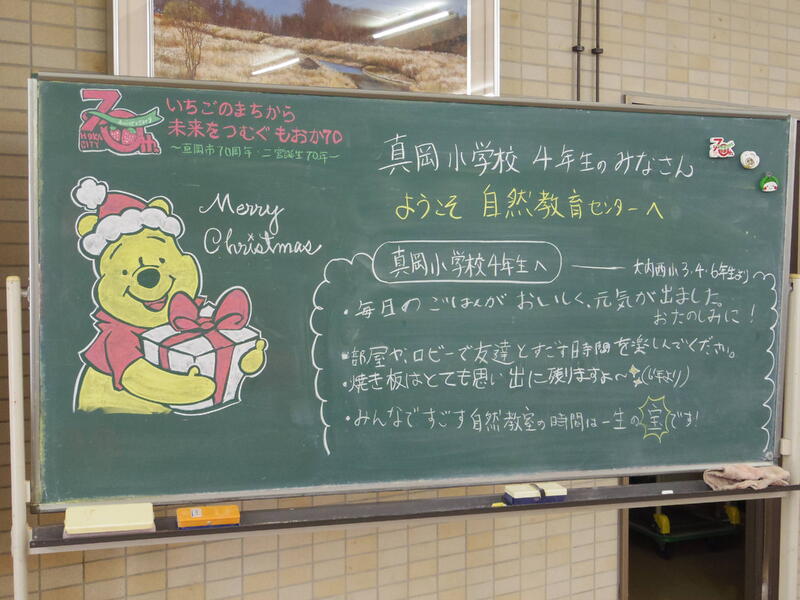 70th
MOKA CITY
いちごのまちから
未来をつむぐ もおか70
～真岡市70周年・二宮誕生70年～
Merry
Christmas
真岡小学校 4年生のみなさん
ようこそ 自然教育センターへ
真岡小学校4年生へ ── 大内西小3.4.6年生より
・毎日のごはんがおいしく、元気が出ました。
おたのしみに！
・部屋や、ロビーで友達とすごす時間を楽しんでください。
・焼き板はとても思い出に残りますよ～(6年より)
・みんなですごす自然教室の時間は一生の宝です！